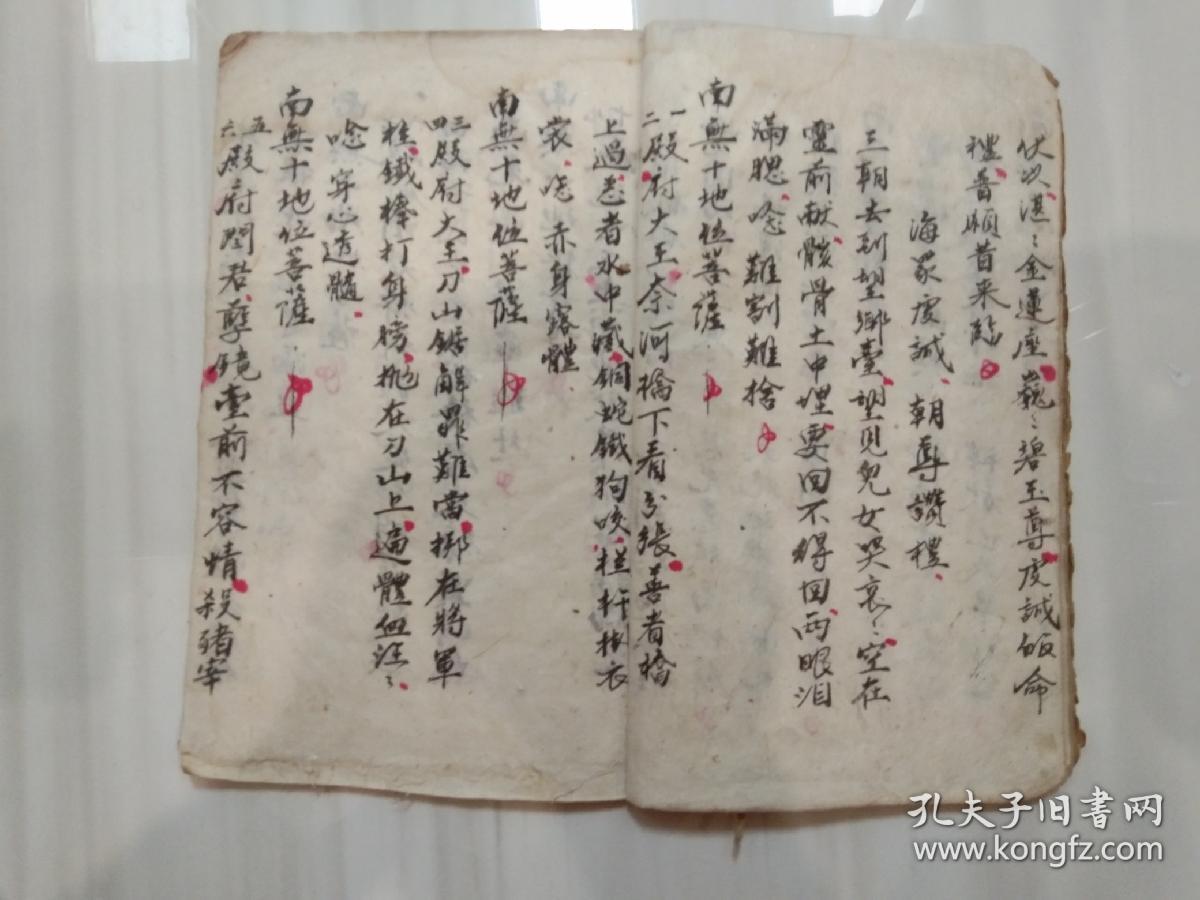 伏以湛〻金蓮座巍〻碧玉尊虔誠皈命
禮普願昔来臨
海眾虔誠朝尊讚禮
三朝去到望鄉臺望見兒女哭哀〻空在
靈前献骸骨土中埋要回不得回兩眼泪
滿腮唸難割難捨
南無十地位菩薩
一二殿府大王奈河橋下看分張善者橋
上過忍者水中藏銅蛇鐵狗咬栏杆掛衣
裳唸赤身露體
南無十地位菩薩
三四殿府大王刀山鋸解罪難當綁在將軍
柱鐵棒打身膀抛在刀山上遍體血淋〻
唸穿心透髓
南無十地位菩薩
五六殿府閻君孽镜臺前不容情殺猪宰
孔夫子旧书网
www.kongfz.com